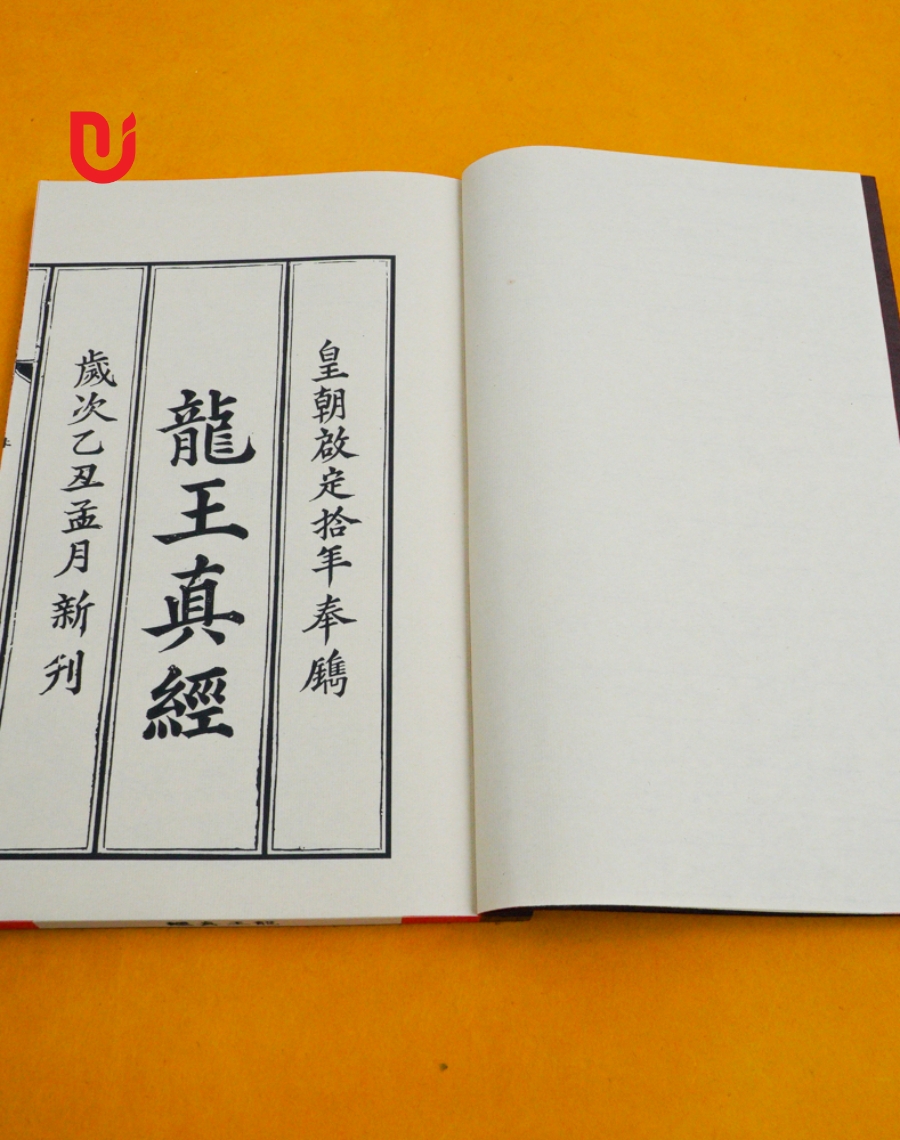 皇朝啟定拾年奉鐫
龍王真經
歲次乙丑孟月新刊